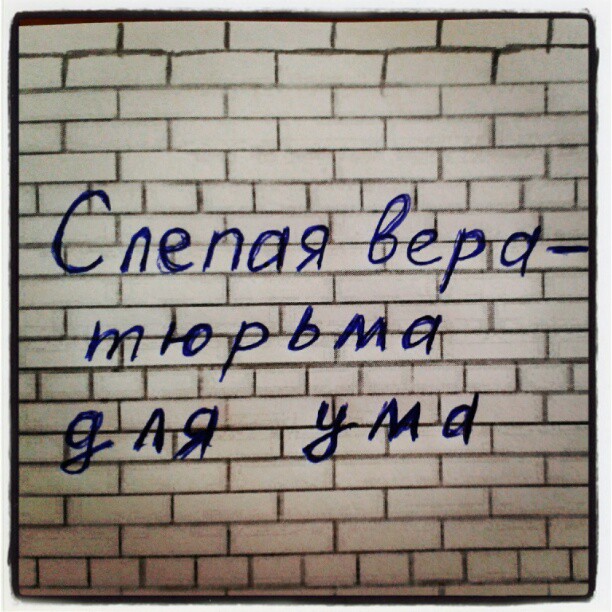 Слепая вера-
тюрьма
для ума